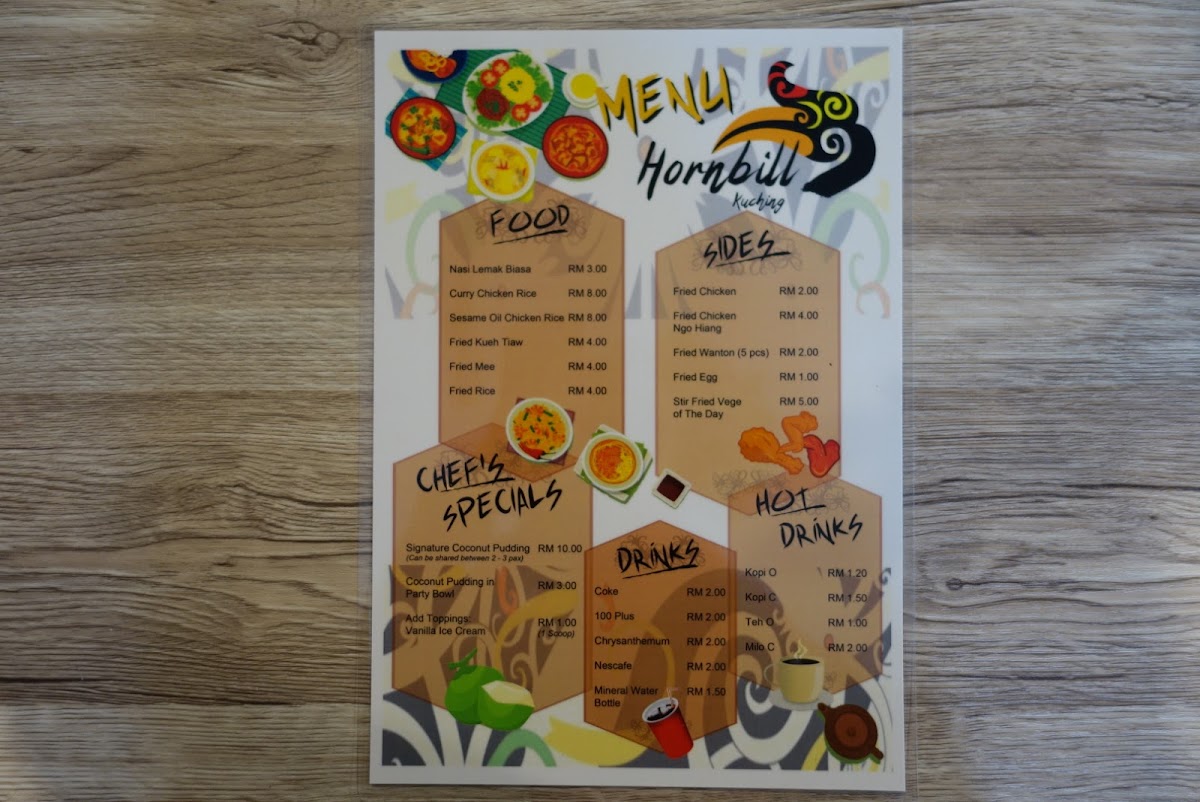 MENU
Hornbill
Kuching
FOOD
Nasi Lemak Biasa RM 3.00
Curry Chicken Rice RM 8.00
Sesame Oil Chicken Rice RM 8.00
Fried Kueh Tiaw RM 4.00
Fried Mee RM 4.00
Fried Rice RM 4.00
SIDES
Fried Chicken RM 2.00
Fried Chicken RM 4.00
Ngo Hiang
Fried Wanton (5 pcs) RM 2.00
Fried Egg RM 1.00
Stir Fried Vege RM 5.00
of The Day
CHEF'S
SPECIALS
Signature Coconut Pudding RM 10.00
(Can be shared between 2 - 3 pax)
Coconut Pudding in RM 3.00
Party Bowl
Add Toppings: RM 1.00
Vanilla Ice Cream (1 Scoop)
DRINKS
Coke RM 2.00
100 Plus RM 2.00
Chrysanthemum RM 2.00
Nescafe RM 2.00
Mineral Water RM 1.50
Bottle
HOT
DRINKS
Kopi O RM 1.20
Kopi C RM 1.50
Teh O RM 1.00
Milo C RM 2.00